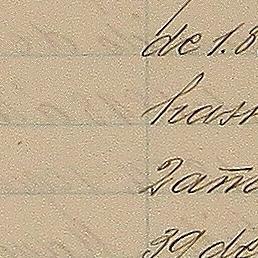 de 1.8
hass
2 aña
39 de